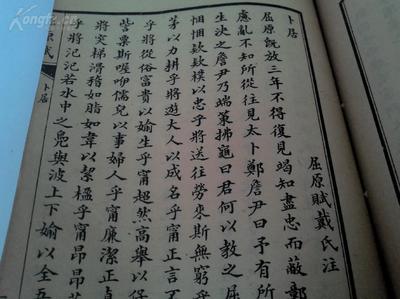 卜居 屈原賦戴氏注
屈原既放三年不得復見竭知盡忠而蔽鄣
慮亂不知所從往見太卜鄭詹尹曰予有所
生決之詹尹乃端策拂龜曰君何以教之屈
悃悃款款樸以忠乎將送往勞來斯無窮乎
茅以力耕乎將遊大人以成名乎甯正言不
乎將從俗富貴以媮生乎甯超然高舉以保
訾粟斯喔咿儒兒以事婦人乎甯廉潔正
將突梯滑稽如脂如韋以絜楹乎甯昂昂
乎將氾氾若水中之鳧與波上下媮以全吾
原賦 卜居